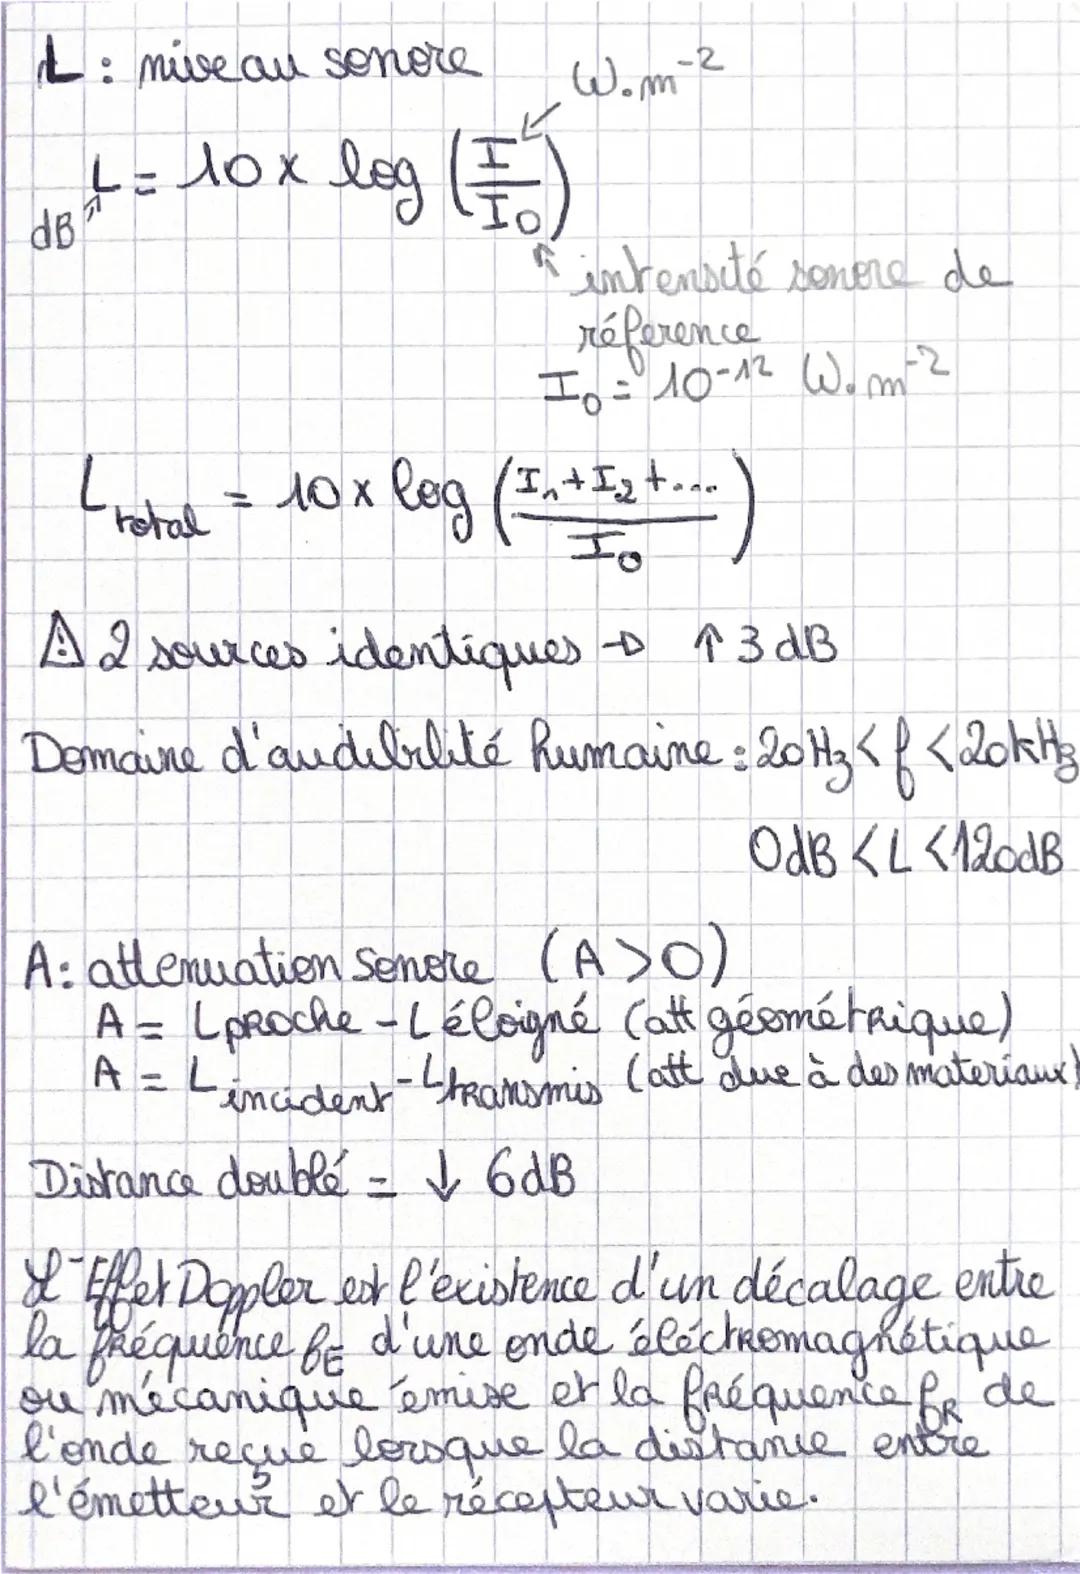 L : niveau sonore
W.m⁻²
L = 10 x log (I/I₀)
dB
intensité sonore de
réference
I₀ = 10⁻¹² W.m⁻²
L total = 10 x log ((I₁+I₂+....)/I₀)
⚠ 2 sources identiques → ↑ 3 dB
Domaine d'audibilité humaine : 20Hz < f < 20kHz
0dB < L < 120dB
A : attenuation sonore (A > 0)
A = L proche - L éloigné (att géométrique)
A = L incident - L transmis (att due à des materiaux)
Distance doublé = ↓ 6dB
L'Effet Doppler est l'existence d'un décalage entre
la fréquence fE d'une onde éléctromagnétique
ou mécanique émise et la fréquence fR de
l'onde reçue lorsque la distance entre
l'émetteur et le récepteur varie.